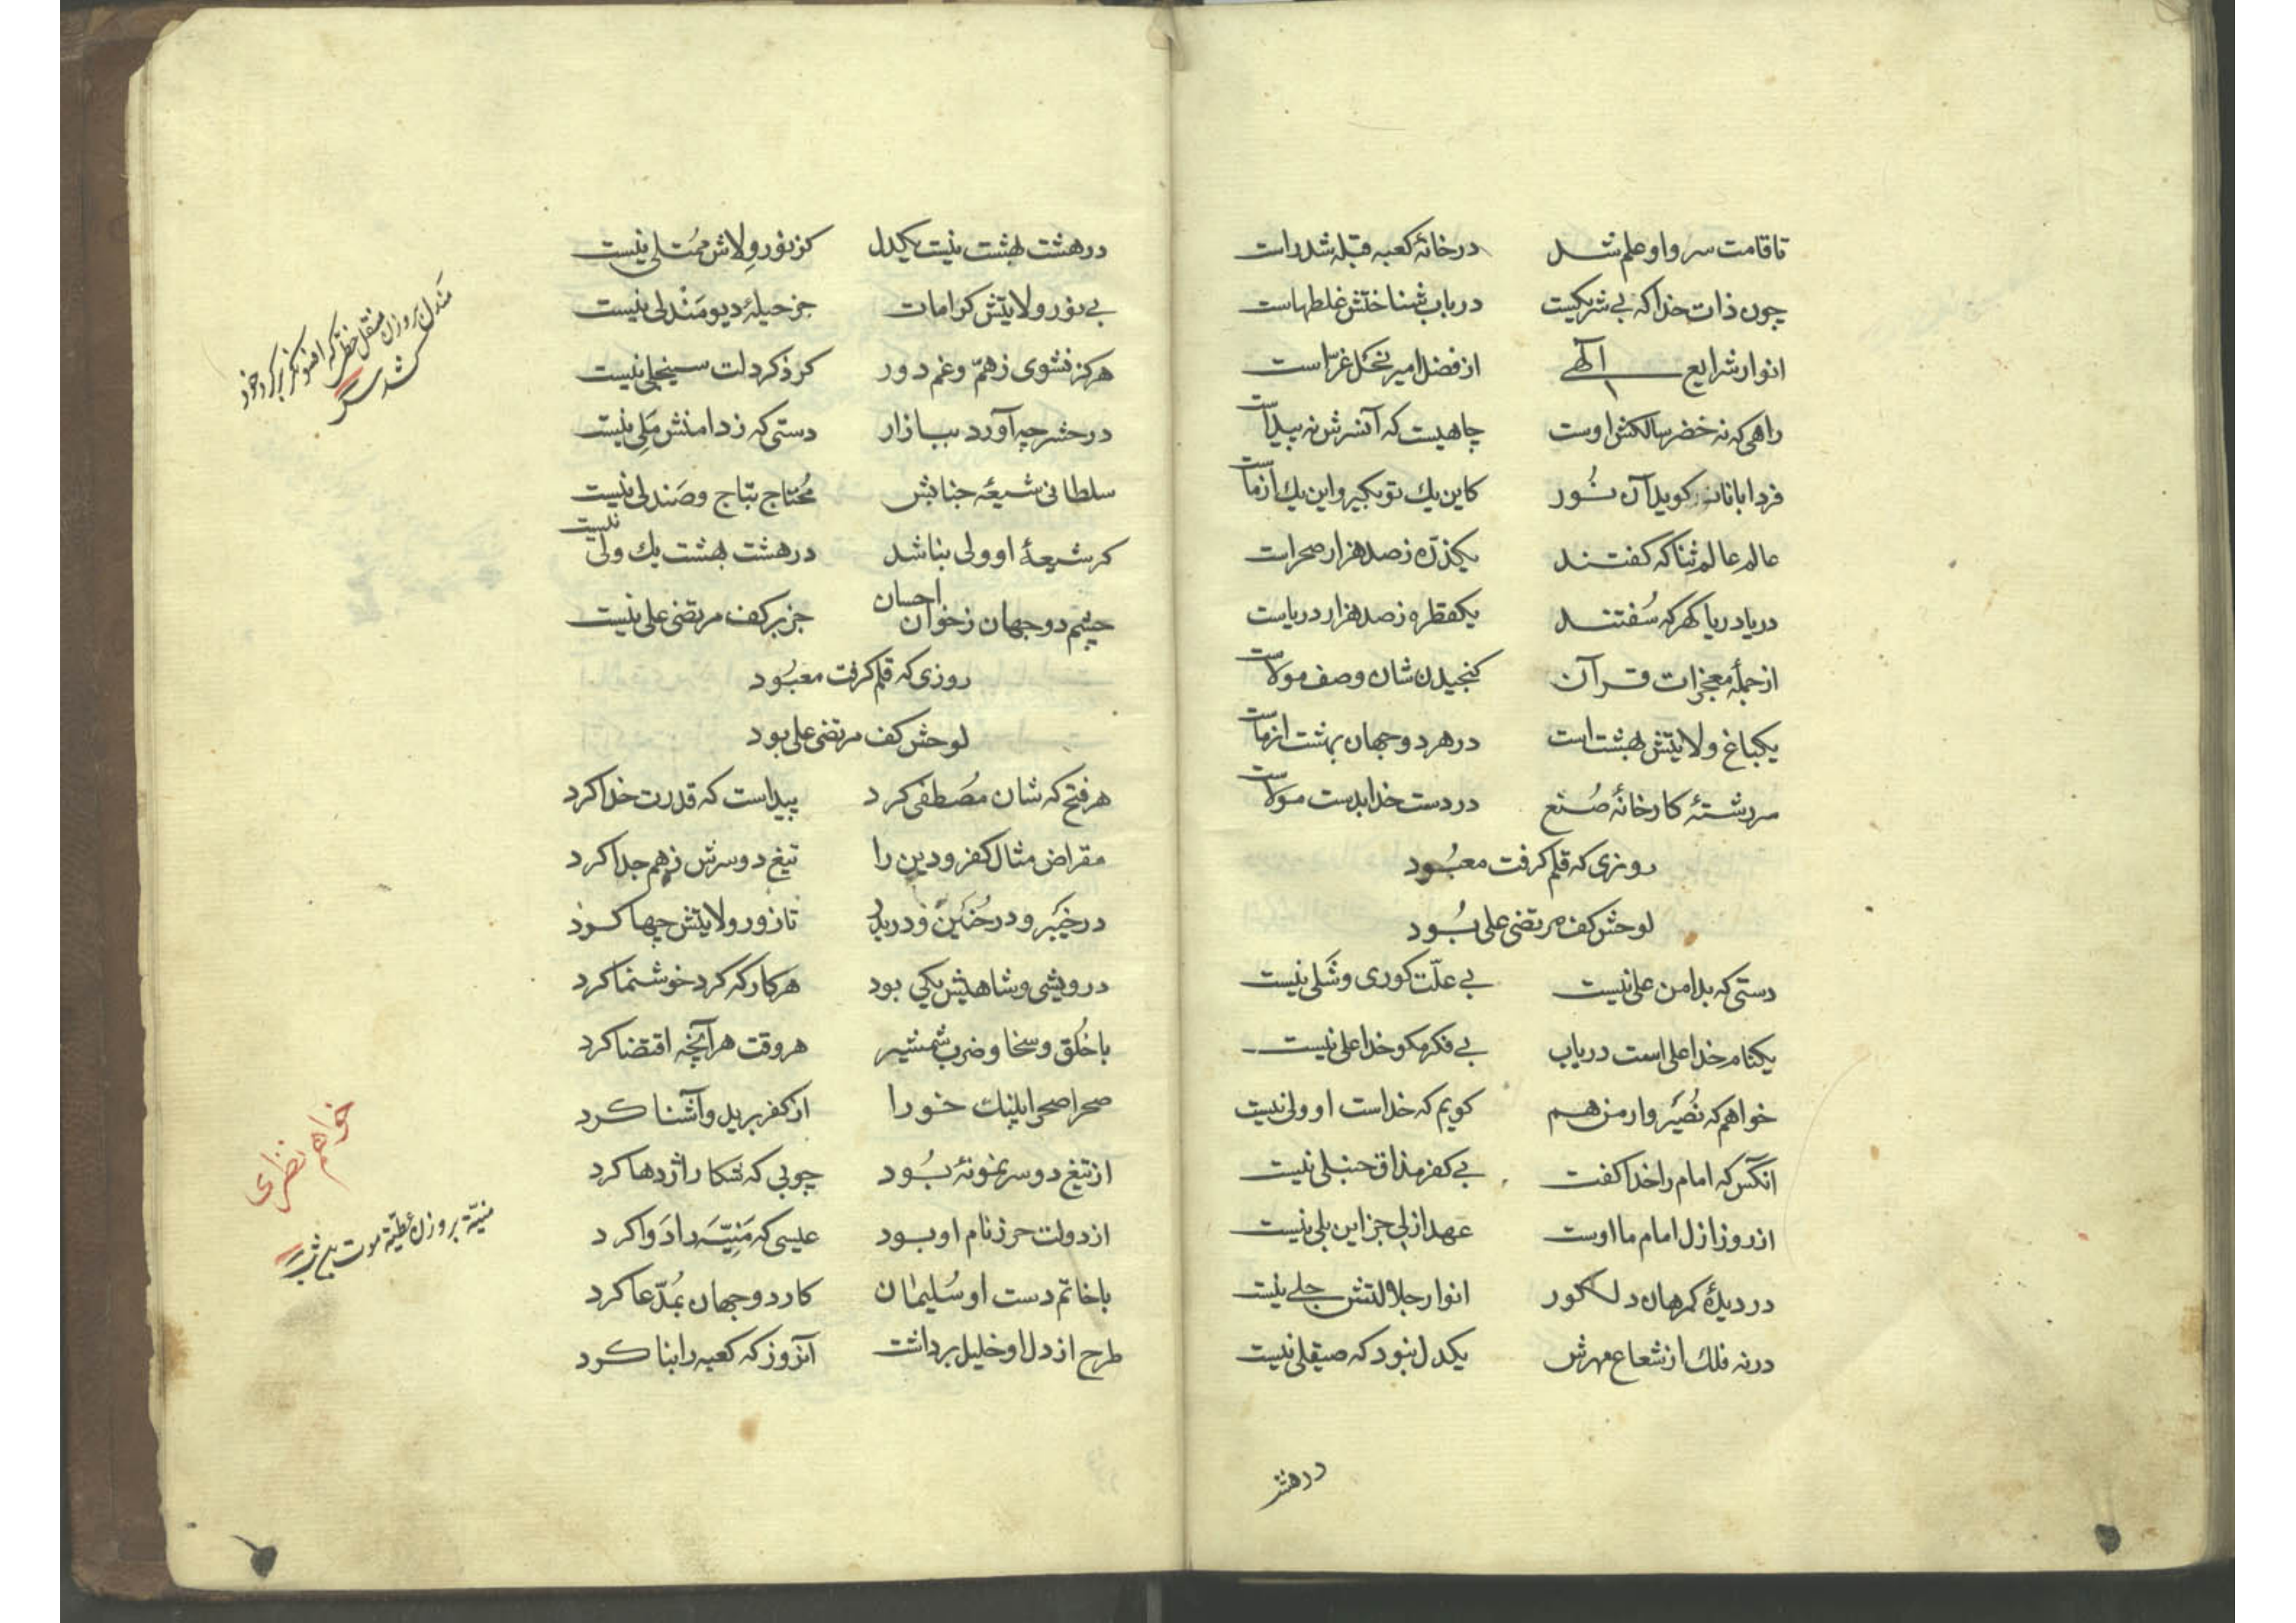 تا قامت سرو او علم شد در خانهٔ کعبه قبله شد راست
چون ذات خدا که بی شریکیست در باب شناختش غلطهاست
انوار شرایع آلهی از فضل امیر نحل غرّاست
راهی که نه خضر سالکش اوست چاهیست که آنسرش نه پیداست
فردا بانانـ کوید آن نور کاین یك تو بکیر و این یك از ماست
عالم عالم ثنا که کفتند یکذرّه ز صد هزار صحراست
دریا دریا کهر که سُفتند یکقطره ز صد هزار دریاست
از جملهٔ معجزات قرآن کنجیدن شان وصف مولاست
یکباغ ولایتش بهشت است در هر دو جهان بهشت از ماست
سررشتهٔ کارخانهٔ صُنع در دست خدا بدست مولاست
روزی که قلم کرفت معبُود
لوحش کف مرتضی علی بُود
دستی که بدامن علی نیست بی علّت کوری و شَلی نیست
یکنام خدا علی است دریاب بی فکر مکو خدا علی نیست
خواهم که نُصَیر وار من هم کویم که خداست او ولی نیست
آنکس که امام را خدا کفت بی کفر مذاق حنبلی نیست
از روز ازل امام ما اوست عهد ازلی جز این بلی نیست
در دیدهٔ کمرهان دلکور انوار جلالتش جلی نیست
در نه فلك از شعاع مهرش یکدل نبود که صیقلی نیست
در هشت
در هشت بهشت نیست یکدل کز نور ولاش مُمتلی نیست
بی نور ولایتش کرامات جز حیلهٔ دیو مَنْدلی نیست
هرکز نشوی ز همّ و غم دور کر ذکر دلت سینجلی نیست
در حشر چه آورد ببازار دستی که ز دامنش مَلِی نیست
سلطانی شیعهٔ جنابش مُحتاج بتاج و صَندلی نیست
کر شیعهٔ او ولی بناشد در هشت بهشت یك ولی نیست
چشم دو جهان ز خوان احسان جز بر کف مرتضی علی نیست
روزی که قلم کرفت معبُود
لوحش کف مرتضی علی بود
هر فتح که شان مصُطفی کرد پیداست که قدرت خدا کرد
مقراض مثال کفر و دین را تیغ دوسرش ز هم جدا کرد
در خیَبر و در حُنَین و در بدر تا زور ولایتش چها کرد
درویشی و شاهیش یکی بود هر کار که کرد خوشنما کرد
با خُلق و سخا و ضرب شمشیر هر وقت هر آنچه اقتضا کرد
صحرا صحرا پلنك خو را از کفر برید و آشنا کرد
از تیغ دوسر نمونهٔ بُود چوبی که شکار اژدها کرد
از دولت حرز نام او بود عیسی که مَنِیّه را دَوا کرد
با خاتم دست او سُلیمان کار دو جهان بمُدّعا کرد
طرح از دل او خلیل برداشت آنروز که کعبه را بنا کرد
مَندل بر وزن منقل خطی که افسونکر بر کرد خود
کشد
خواهم نظری
منیّة بر وزن عطیّة موت